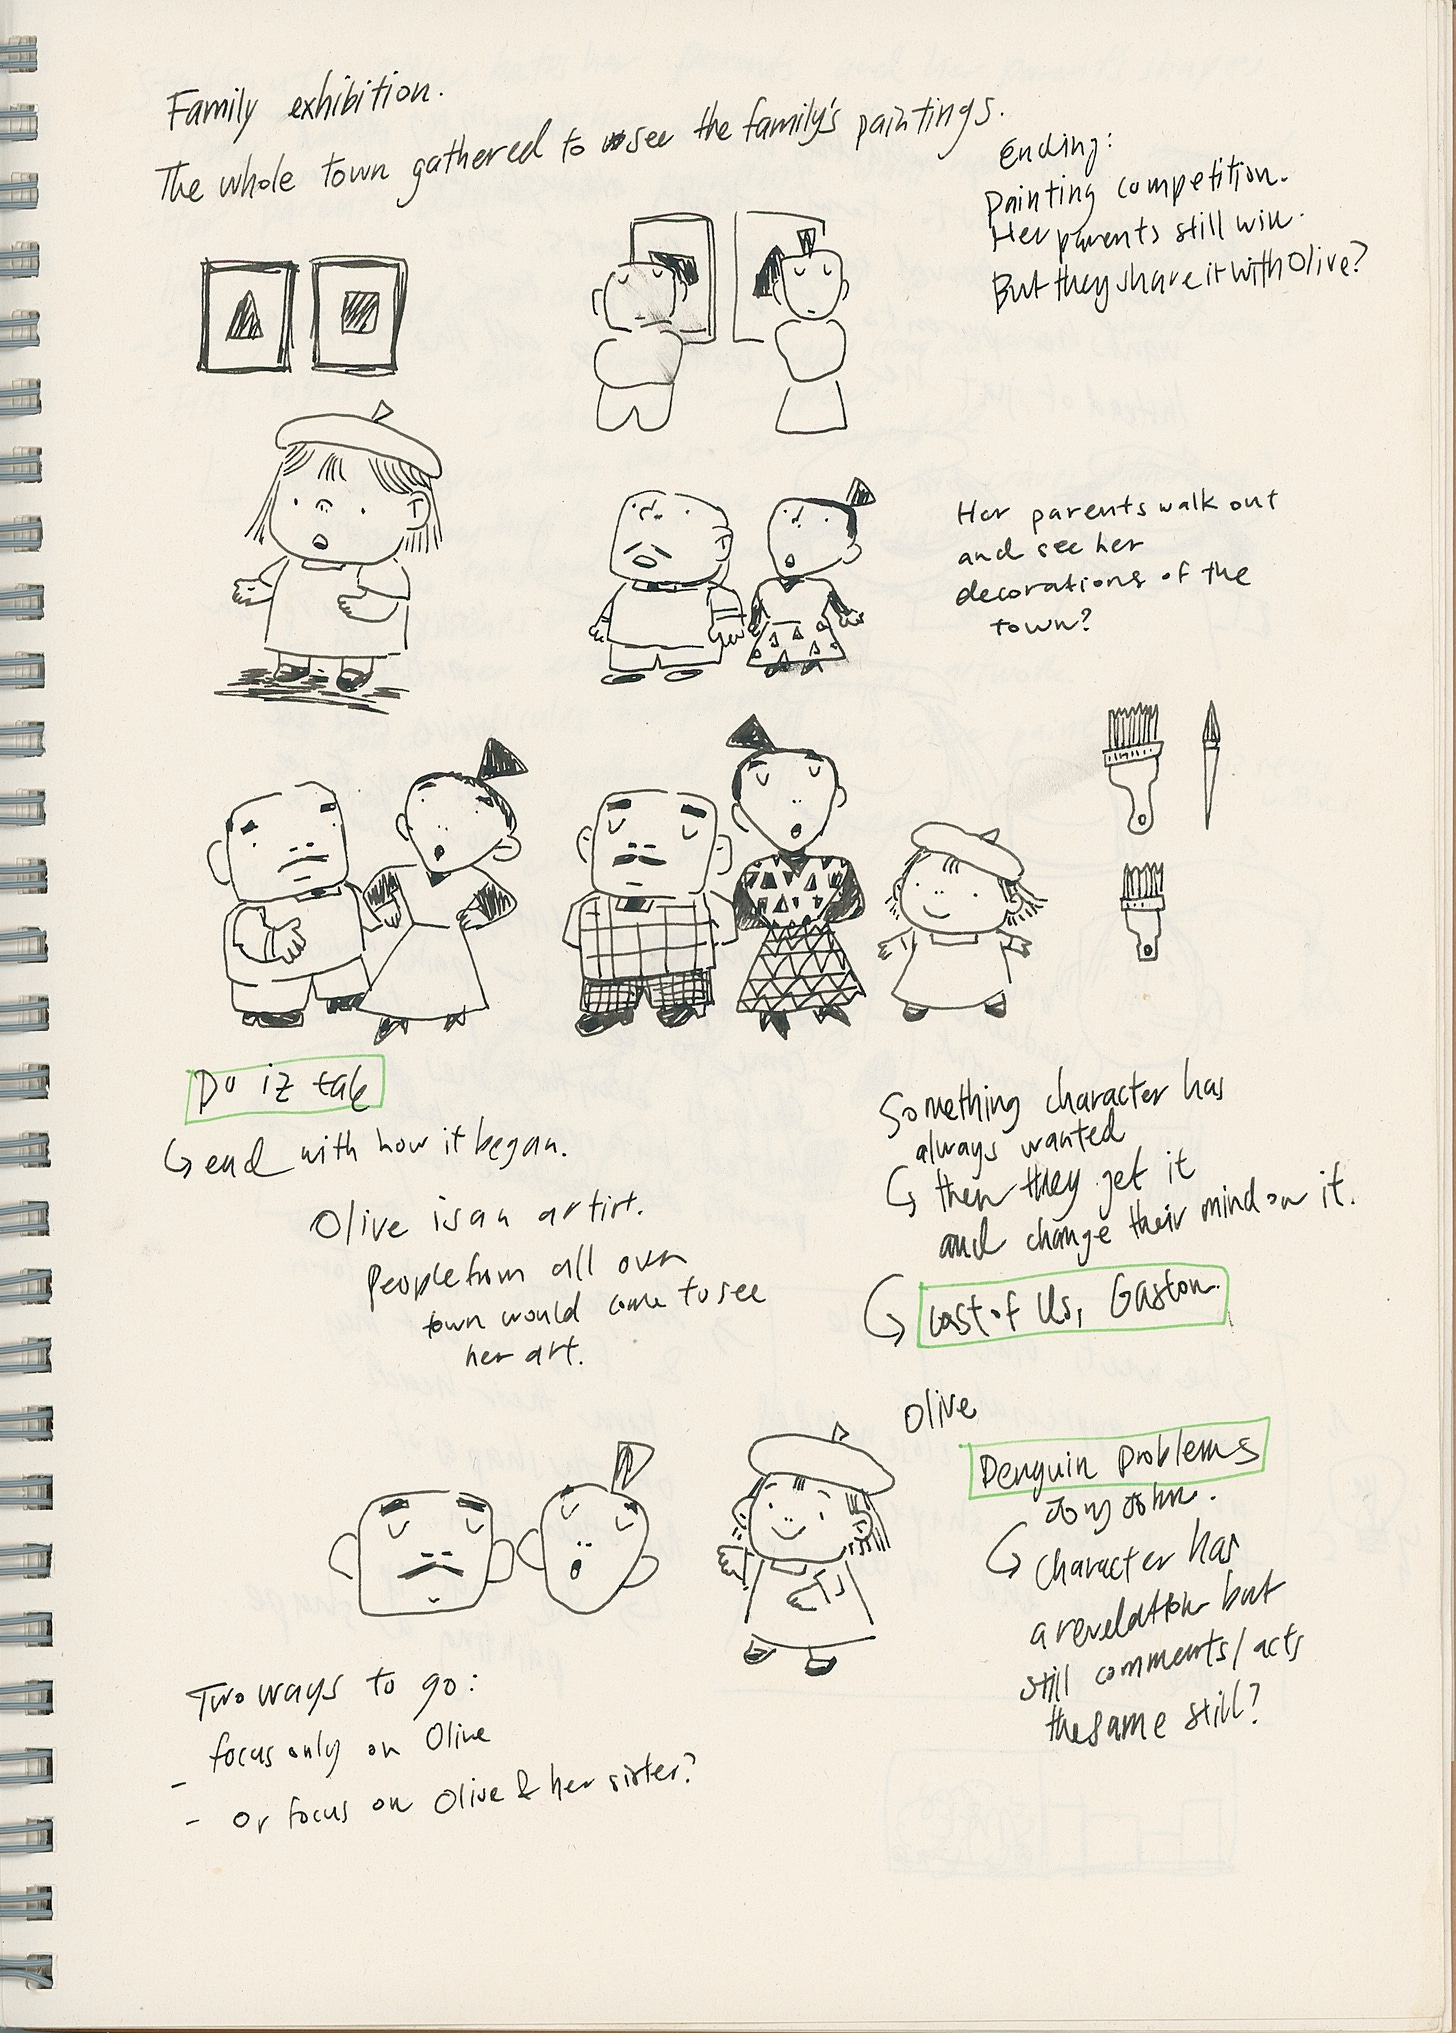 Family exhibition.
The whole town gathered to see the family's paintings.
Ending:
Painting competition.
Her parents still win.
But they share it with Olive?
Her parents walk out
and see her
decorations of the
town?
Du iz tak
end with how it began.
Olive is an artist.
People from all over
town would come to see
her art.
Something character has
always wanted
then they get it
and change their mind on it.
Last of Us, Gaston.
Olive
Penguin Problems
Jory John.
character has
a revelation but
still comments/acts
the same still?
Two ways to go:
focus only on Olive
- or focus on Olive & her sister?